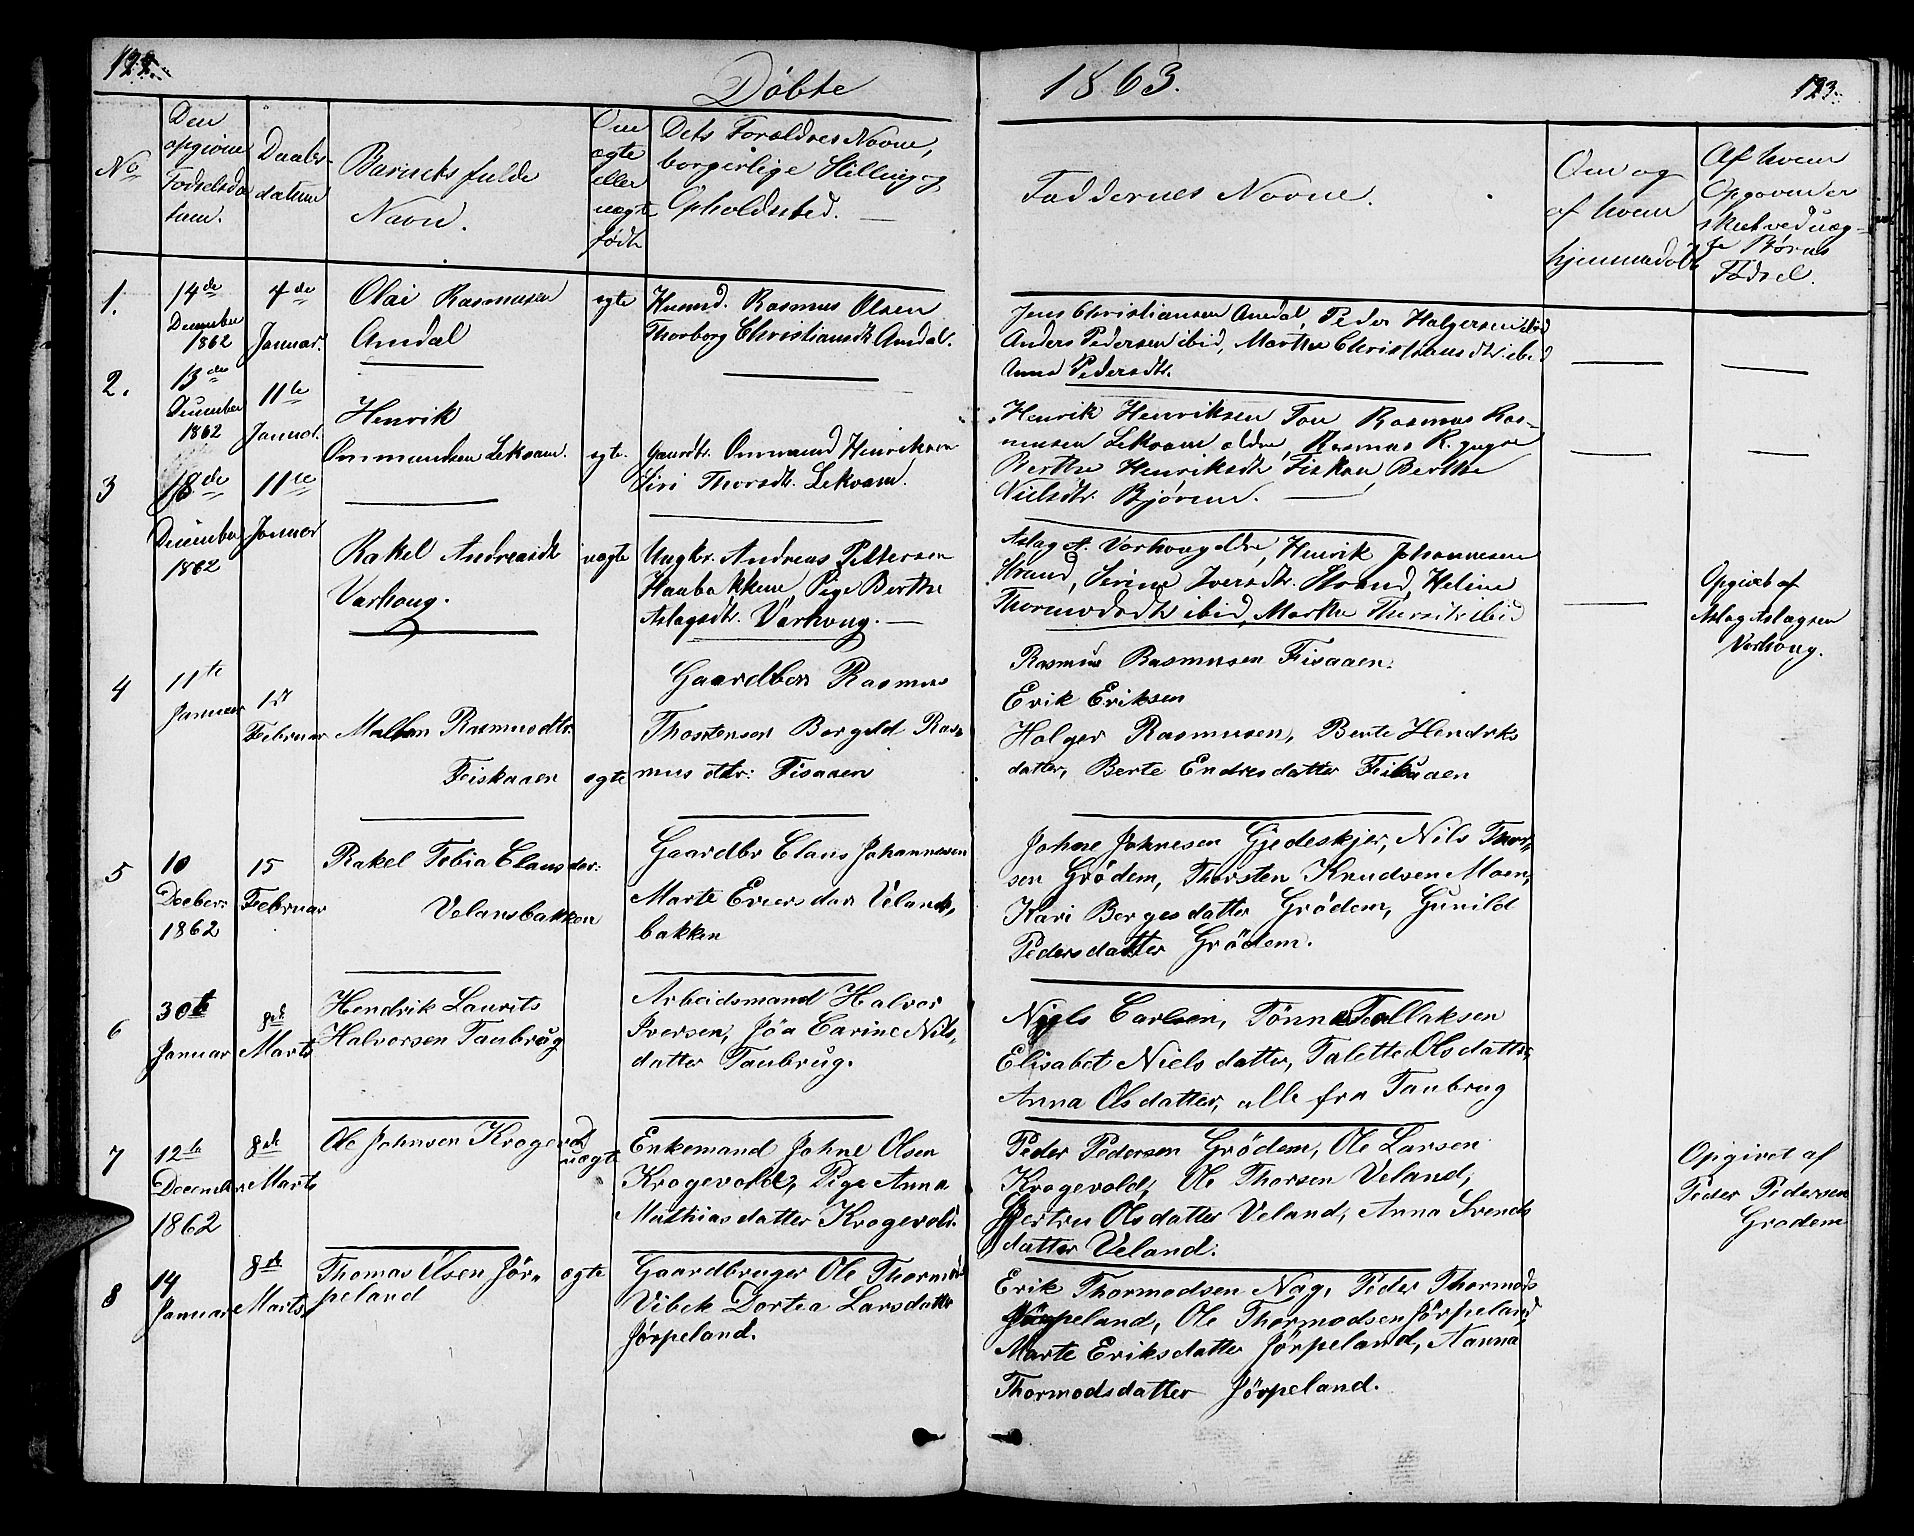 122.
Döbte
1863.
123.
No
Den
opgivne
Födselsda
tum.
Daabs-
datum
Barnets fulde
Navn.
Om
ægte
eller
uægte
födt
Dets Forældres Navne,
borgerlige Stilling og
Opholdssted.
Faddernes Navne.
Om og
af hvem
hjemmedöbt
Af hvem
Opgaven er
skeet ved uæg-
te Börns
Födsel.
1.
14de
December
1862
4de
Januar.
Olai Rasmusen
Amdal
ægte
Huusmd. Rasmus Olsen
Thorborg Christiansdt. Amdal.
Jens Christiansen Amdal, Peder Holgersen ibid
Anders Pedersen ibid, Marthe Christiansdt. ibid
Anna Pedersdt.
2.
13de
December
1862
11te
Januar.
Henrik
Ommundsen Lekvam.
ægte.
Gaardbr. Ommund Henriksen
Siri Thorsdt. Lekvam.
Henrik Henriksen Tou Rasmus Ras-
musen Lekvam ældre, Rasmus R. yngre
Berthe Henriksdt. Fiskaa, Berthe
Nielsdt. Bjøreim.
3
18de
December
1862
11te
Januar
Rakel Andreasdt
Varhoug.
uægte
Ungkr. Andreas Pettersen
Haubakken, Pige Berthe
Aslagsdt. Varhoug.
Aslag A. Varhoug ældre, Henrik Johannesen
Strand, Serine Iversdt. Strand, Heline
Thormodsdt ibid, Marthe Thorsdt. ibid
Opgivet af
Aslag Aslagsen
Varhoug.
4
11te
Januar
1st
Februar
Malhen Rasmusdtr.
Feiskaaen
ægte
Gaardber Rasmus
Thostensen Bergild Ras-
mus dtr: Fisaaen
Rasmus Rasmusen Fisaaen.
Erik Eriksen
Holger Rasmusen, Berte Hendriks
datter, Berte Endresdatter Feiskaaen
5
10
Deeber
1862
15
Februar
Rakel Tobia Clausdor:
Velansbakken
Gaardbr Claus Johannesen
Marte Eversdar Velands,
bakken
Johne Johnesen Gjedeskjer, Nils Thor-
sen Grödem, Thorsten Knudsen Moen,
Kari Bergesdatter Grödem, Gunild
Pedersdatter Grödem.
6
30te
Januar
8de
Marts
Hendrik Laurits
Halvorsen Taubrug
Arbeidsmand Halvor
Iversen, Jöa Carine Nils,
datter Taubrug.
Niels Carlsen, Tönnes Tollaksen
Elisabet Nielsdatter, Talette Olsdatter,
Anna Olsdatter, alle fra Taubrug
7
12te
December
1862
8de
Marts
Ole Johnsen Krogevol
uægte
Enkemand Johne Olsen
Krogevold, Pige Anna
Mathiasdatter Krogevold.
Peder Pedersen Grödem, Ole Larsen
Krogevold, Ole Thorsen Veland,
Gjertru Olsdatter Veland, Anna Svends
datter Veland.
Opgivet af
Peder Pedersen
Grodem
8
14
Januar
8de
Marts
Thomas Olsen Jör,
peland
ægte
Gaardbruger Ole Thormods
Vibek Dortea Larsdatter
Jörpeland.
Erik Thormodsen Nag, Peder Thormods
Jörpeland, Ole Thormodsen Jörpeland,
Marte Eriksdatter Jörpeland, Aanna
Thormodsdatter Jörpeland.